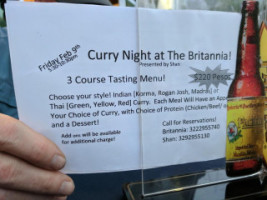 Friday Feb 9th
5:30-10:30pm
Curry Night at The Britannia!
Presented by Stan
3 Course Tasting Menu!
$220 Pesos
Choose your style! Indian (Korma, Rogan Josh, Madras) or
Thai (Green, Yellow, Red) Curry. Each Meal Will Have an App
Your Choice of Curry, with Choice of Protein (Chicken/Beef
and a Dessert!
Add ons will be available
for additional charge!
Call for Reservations!
Britannia: 3222953740
Stan: 3292955130